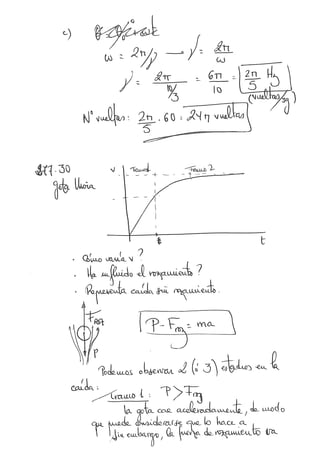 c)
ω = 2π/ν → ν = 2π/ω
ν = 2π / 10/3 = 6π/10 = 2π/5 Hz
(vueltas/sg)
Nº vueltas: 2π/5 . 60 = 24π vueltas
177.30
gota lluvia
v Tramo 1 Tramo 2
t t
· Cómo varía v?
· Ha influido el rozamiento?
· Representa caída sin rozamiento.
P - Froz = ma
P
Podemos observar 2 (ó 3) estadios en la
caída:
Tramo 1: P > Froz
la gota cae aceleradamente, de modo
que puede considerarse que lo hace a
Sin embargo, la fuerza de rozamiento va